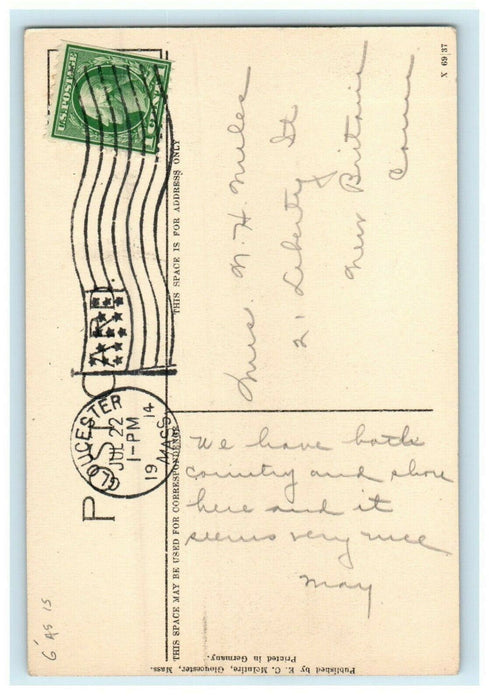 POST CARD
U.S. POSTAGE
1 CENT 1
GLOUCESTER
JUL 22
1-PM
19 14
MASS.
THIS SPACE MAY BE USED FOR CORRESPONDENCE
THIS SPACE IS FOR ADDRESS ONLY
X 69|37
Mrs. N. H. Mules
21 Liberty St
New Britain
Conn
We have both
country and shore
here and it
seems very nice
May
Published by E. C. McIntire, Gloucester, Mass.
Printed in Germany.
6' AS IS